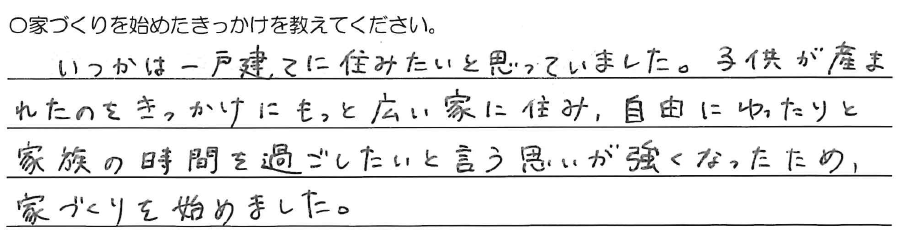 ○家づくりを始めたきっかけを教えてください。
いつかは一戸建てに住みたいと思っていました。子供が産ま
れたのをきっかけにもっと広い家に住み,自由にゆったりと
家族の時間を過ごしたいと言う思いが強くなったため,
家づくりを始めました。